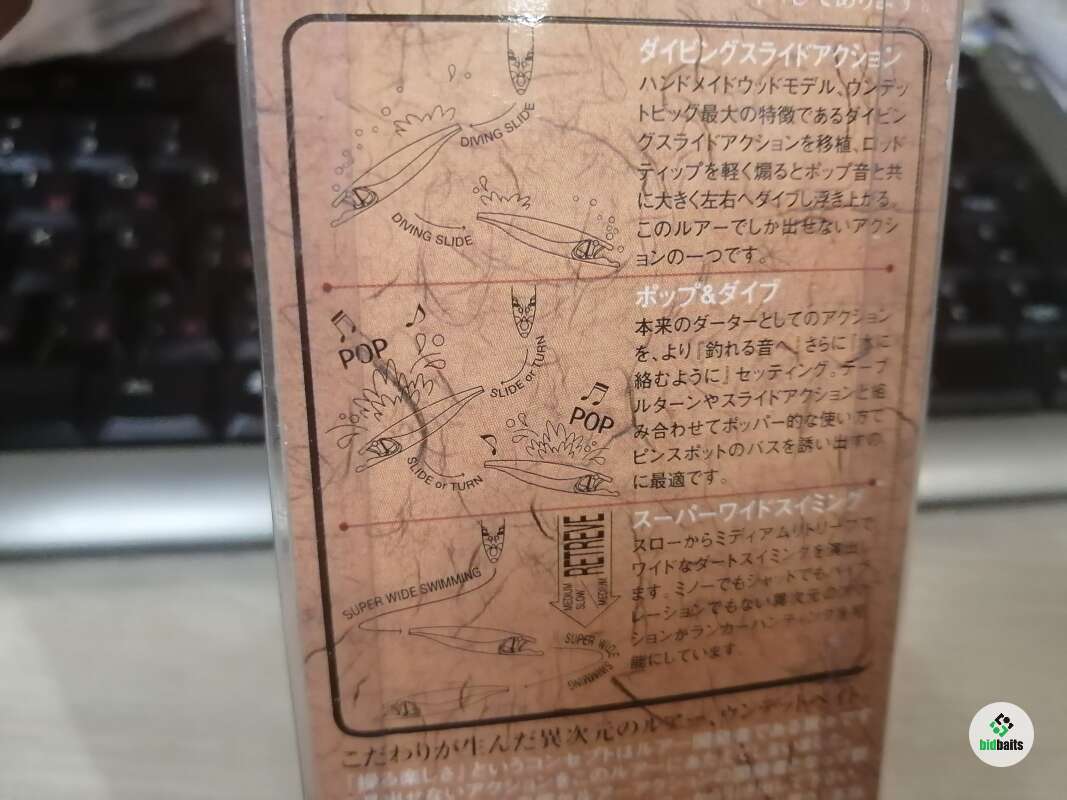 してあります。
ダイビングスライドアクション
ハンドメイドウッドモデル、ウンデッ
トピッグ最大の特徴であるダイビン
グスライドアクションを移植、ロッド
ティップを軽く煽るとポップ音と共
に大きく左右へダイブし浮き上がる。
このルアーでしか出せないアクシ
ョンの一つです。
DIVING SLIDE
DIVING SLIDE
ポップ&ダイブ
本来のダーターとしてのアクション
を、より『釣れる音へ』さらに『水に
絡むように』セッティング。テーブ
ルターンやスライドアクションと組
み合わせてポッパー的な使い方で
ピンスポットのバスを誘い出すの
に最適です。
POP
SLIDE or TURN
POP
SLIDE or TURN
スーパーワイドスイミング
スローからミディアムリトリーブで
ワイドなダートスイミングを演出し
ます。ミノーでもシャッドでもバイブ
レーションでもない異次元のアク
ションがランカーハンティングを可
能にしています。
RETREVE
MEDIUM
SLOW
MEDIUM
SUPER WIDE SWIMMING
SUPER WIDE
SWIMMING
こだわりが生んだ異次元のルアー、ウンデットベイト
bidbaits